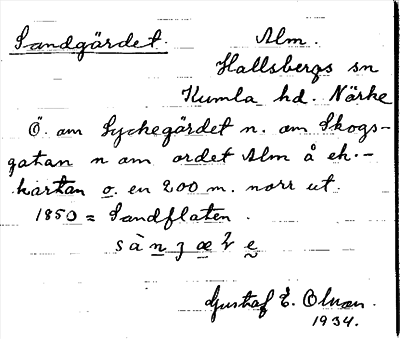 Sandgärdet. Alm.
Hallsbergs sn
Kumla hd. Närke
Ö. om Lyckegärdet n. om Skogs-
gatan n om ordet Alm å ek.-
kartan o. en 200 m. norr ut.
1850 = Sandflaten.
Gustaf E.
1934.